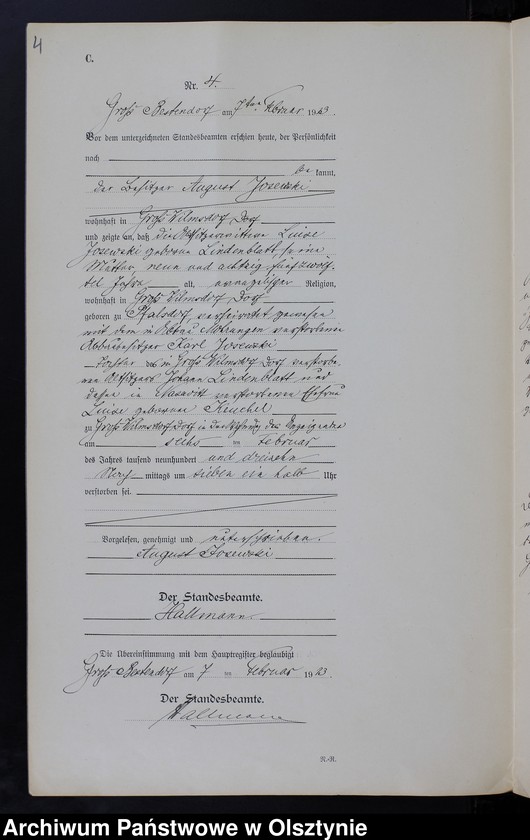 4
C.
Nr. 4.
Groß Bestendorf am 7ten Februar 1913.
Vor dem unterzeichneten Standesbeamten erschien heute, der Persönlichkeit
nach
be kannt,
der Besitzer August Josewski
wohnhaft in Groß Wilmsdorf, Dorf
und zeigte an, daß die Besitzerwittwe Luise
Josewski geborne Lindenblatt, seine
Mutter, neun und achtzig fünf zwölf
tel Jahre alt, evangelischer Religion,
wohnhaft in Groß Wilmsdorf, Dorf
geboren zu verheiratet gewesen
mit dem in Abbau Mohrungen verstorbenen
Abbaubesitzer Karl Josewski
Tochter des in Groß Wilmsdorf Dorf verstorbe-
nen Besitzers Johann Lindenblatt und
dessen in verstorbenen Ehefrau
Luise geborenen Keuchel
zu Groß Wilmsdorf, Dorf in der Wohnung des Anzeigenden
am sechs ten Februar
des Jahres tausend neunhundert und dreizehn
Nach mittags um sieben ein halb Uhr
verstorben sei.
Vorgelesen, genehmigt und unterschrieben.
August Josewski
Der Standesbeamte.
Hallmann.
Die Übereinstimmung mit dem Hauptregister beglaubigt
Groß Bestendorf am 7 ten Februar 1913.
Der Standesbeamte.
Hallmann
R.-R.
Archiwum Państwowe w Olsztynie